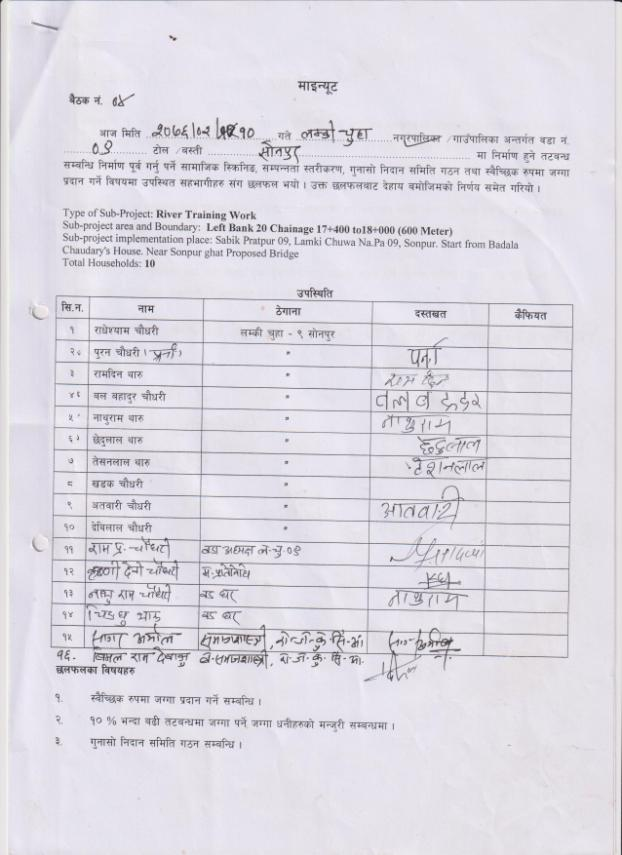 माइन्यूट
बैठक नं. ०४
आज मिति २०७६/०२/१० गते लम्की चुहा नगरपालिका /गाउँपालिका अन्तर्गत वडा नं.
०९ टोल /बस्ती सोनपुर मा निर्माण हुने तटबन्ध
सम्बन्धि निर्माण पूर्व गर्नु पर्ने सामाजिक स्क्रिनिङ, सम्पन्नता स्तरीकरण, गुनासो निदान समिति गठन तथा स्वैच्छिक रुपमा जग्गा
प्रदान गर्ने विषयमा उपस्थित सहभागीहरु संग छलफल भयो । उक्त छलफलबाट देहाय बमोजिमको निर्णय समेत गरियो ।
Type of Sub-Project: River Training Work
Sub-project area and Boundary: Left Bank 20 Chainage 17+400 to18+000 (600 Meter)
Sub-project implementation place: Sabik Pratpur 09, Lamki Chuwa Na.Pa 09, Sonpur. Start from Badala
Chaudary's House. Near Sonpur ghat Proposed Bridge
Total Households: 10
उपस्थिति
सि.न. नाम ठेगाना दस्तखत कैफियत
१ राधेश्याम चौधरी लम्की चुहा - ९ सोनपुर
२ पुरन चौधरी " पर्ना
३ रामदिन थारु " राम दिन
४ बल बहादुर चौधरी "
५ नाथुराम थारु " नाथुराम
६ छेदुलाल थारु " छेदुलाल
७ तेसनलाल थारु " टेशनलाल
८ खडक चौधरी "
९ अतवारी चौधरी " आतवारी
१० देबिलाल चौधरी "
११ राम प्र. चौधरी वडा अध्यक्ष ल.चु.०९
१२ देवी चौधरी
१३ नाथु राम चौधरी नाथुराम
१४
१५ समाजशास्त्री,
१६. राम
छलफलका बिषयहरु
१. स्वैच्छिक रुपमा जग्गा प्रदान गर्ने सम्बन्धि ।
२. १० % भन्दा बढी तटबन्धमा जग्गा पर्ने जग्गा धनीहरुको मन्जुरी सम्बन्धमा ।
३. गुनासो निदान समिति गठन सम्बन्धि ।